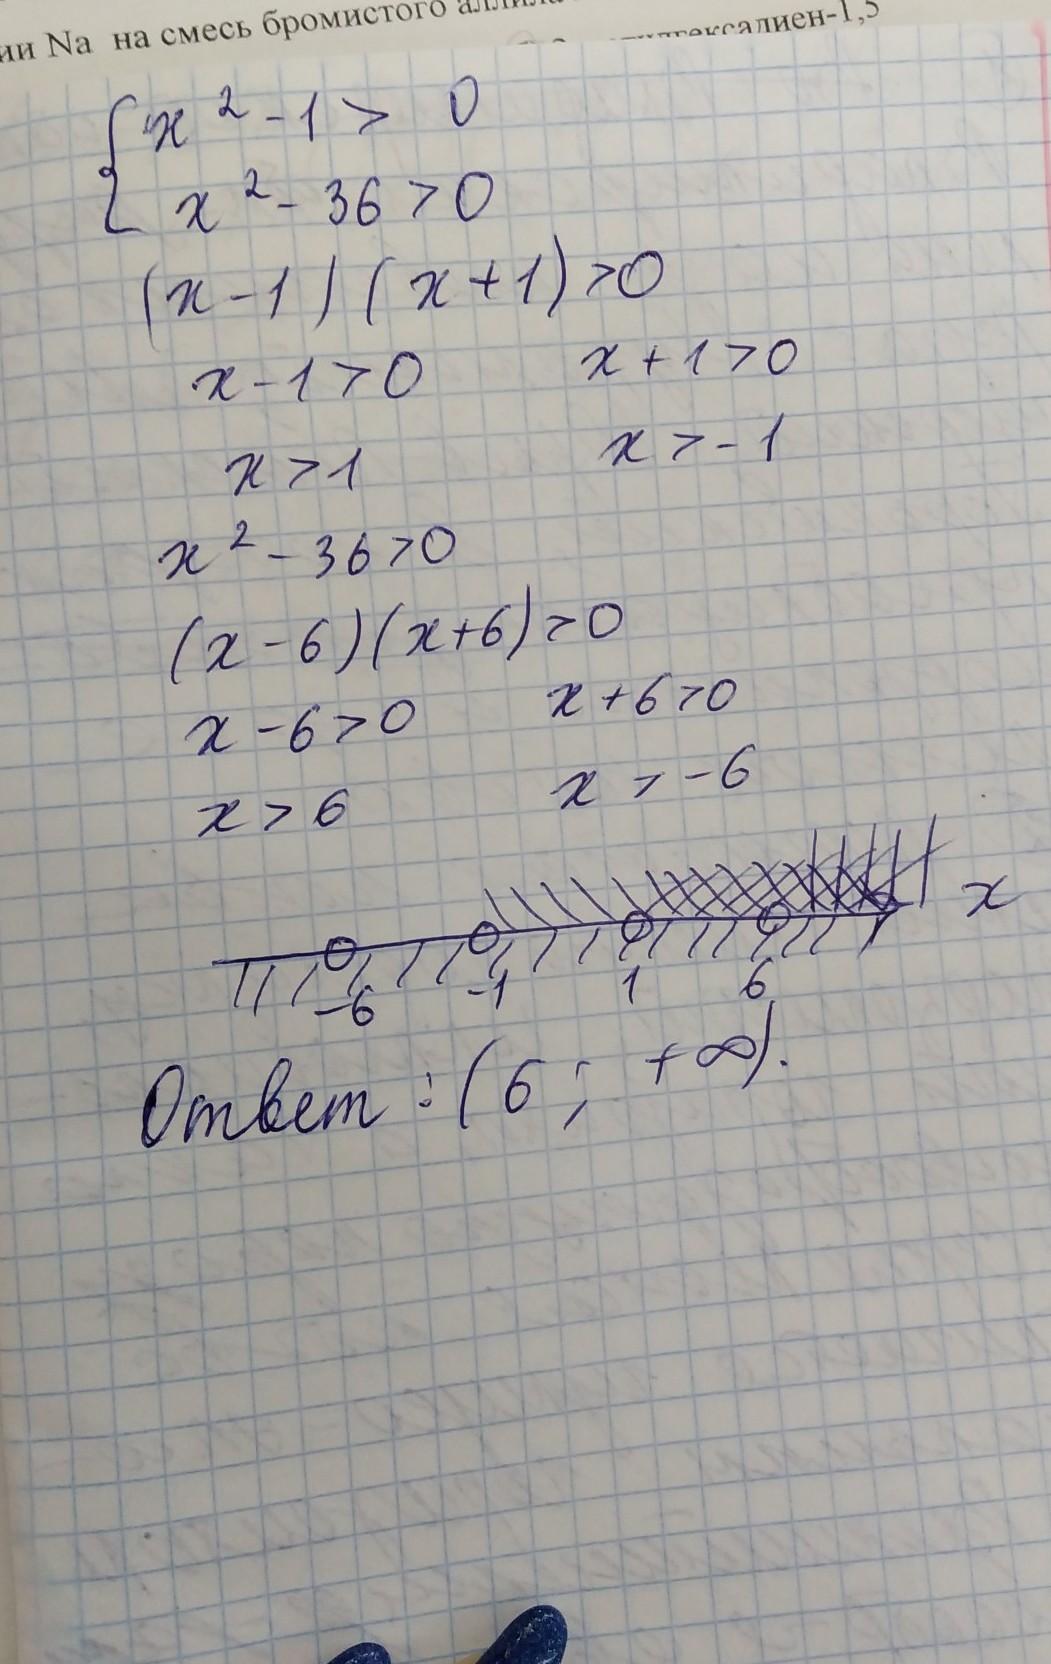 ии Na на смесь бромистого
гексадиен-1,5
{ x² - 1 > 0
x² - 36 > 0
(x - 1) (x + 1) > 0
x - 1 > 0 x + 1 > 0
x > 1 x > - 1
x² - 36 > 0
(x - 6)(x + 6) > 0
x - 6 > 0 x + 6 > 0
x > 6 x > - 6
x
-6 -1 1 6
Ответ : (6 ; + ∞).